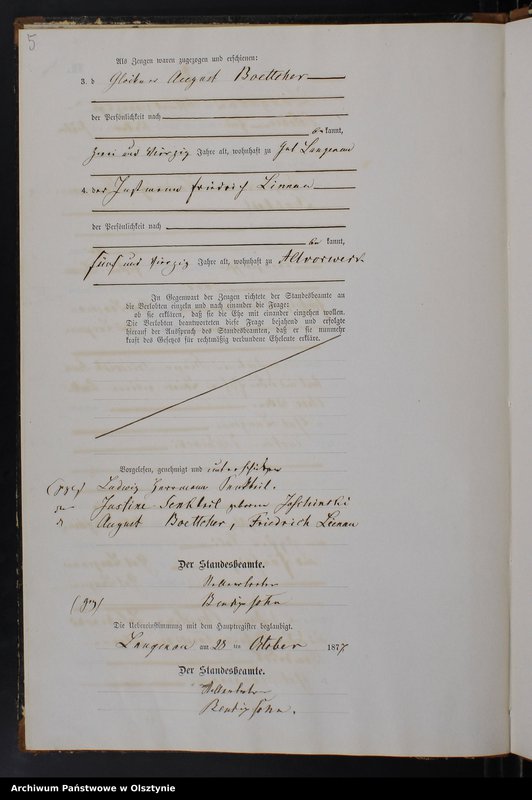 5
Als Zeugen waren zugezogen und erschienen:
3. d August Boettcher
der Persönlichkeit nach
bekannt,
zwei und vierzig Jahre alt, wohnhaft zu Gut Langenau
4. der Instmann Friedrich Linnau
der Persönlichkeit nach
bekannt,
fünf und vierzig Jahre alt, wohnhaft zu Altvorwerk
In Gegenwart der Zeugen richtete der Standesbeamte an
die Verlobten einzeln und nach einander die Frage:
ob sie erklären, daß sie die Ehe mit einander eingehen wollen.
Die Verlobten beantworteten diese Frage bejahend und erfolgte
hierauf der Ausspruch des Standesbeamten, daß er sie nunmehr
kraft des Gesetzes für rechtmäßig verbundene Eheleute erkläre.
Vorgelesen, genehmigt und unterschrieben
(gez) Ludwig Herrmann
Justine geborene
August Boettcher, Friedrich Linnau
Der Standesbeamte.
(gez)
Die Uebereinstimmung mit dem Hauptregister beglaubigt.
Langenau am 23 ten October 1877
Der Standesbeamte.
Archiwum Państwowe w Olsztynie